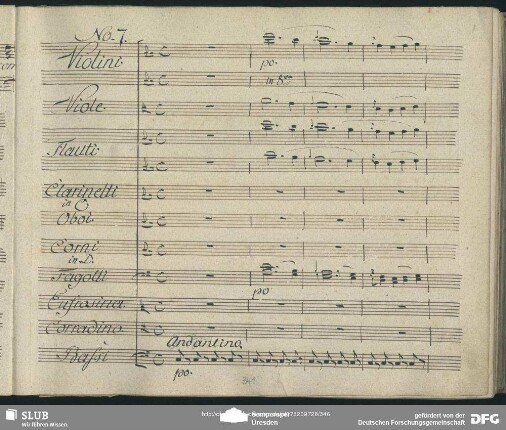 No. 7.
Violini
po.
in 8va
Viole
Flauti
Clarinetti
in C
Oboi
Corni
in D.
Fagotti
po
Eufrosina
Corradino
Andantino
Bassi
po.
341
SLUB
Wir führen Wissen.
Dresden
gefördert von der
Deutschen Forschungsgemeinschaft
DFG